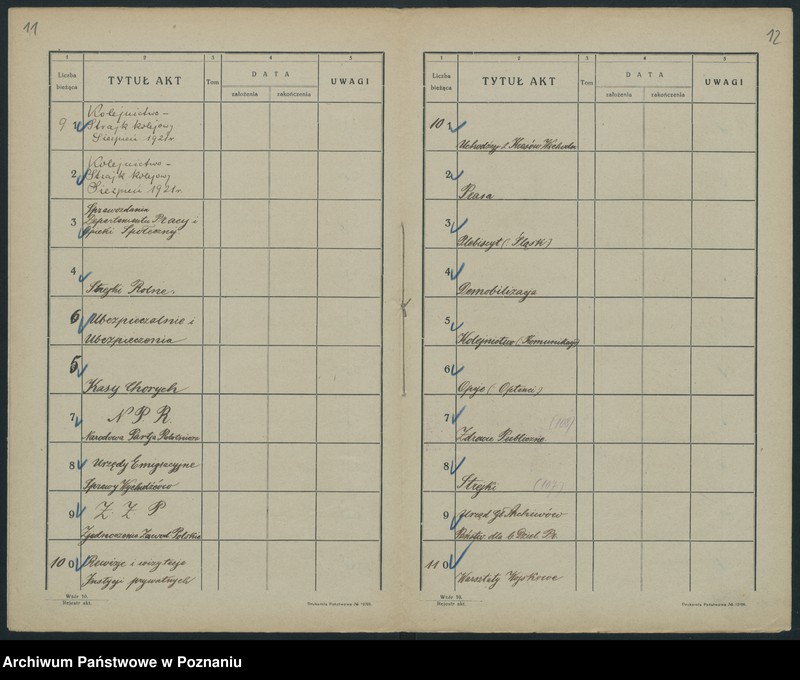 11
1 2 3 4 5
Liczba bieżąca
TYTUŁ AKT
Tom
DATA
założenia zakończenia
UWAGI
9 1
Kolejnictwo –
Strajk kolejowy
Sierpień 1921 r.
2
Kolejnictwo –
Strajk kolejowy
Sierpień 1921 r.
3
Sprawozdania
Departamentu Pracy i
Opieki Społecznej
4
Strejki Rolne.
6
Ubezpieczalnie i
Ubezpieczenia
5
Kasy Chorych
7
N P R.
Narodowa Partja Robotnicza
8
Urzędy Emigracyjne
Sprawy Wychodźców
9
Z. Z. P
Zjednoczenie Zawod. Polskie
10 0
Rewizje i wizytacje
Instytucji prywatnych
Wzór 10.
Rejestr akt.
12
1 2 3 4 5
Liczba bieżąca
TYTUŁ AKT
Tom
DATA
założenia zakończenia
UWAGI
10 1
Uchodźcy z Kresów Wschodn.
2
Prasa
3
Plebiscyt (: Śląsk)
4
Demobilizacja
5
Kolejnictwo (Komunikacja)
6
Opcje (: Optanci)
7
Zdrowie Publiczne
8
Strejki
9
Urząd Archiwów
Państw. dla b. Dziel. Pr.
11 0
Warsztaty Wojskowe
Wzór 10.
Rejestr akt.
Archiwum Państwowe w Poznaniu